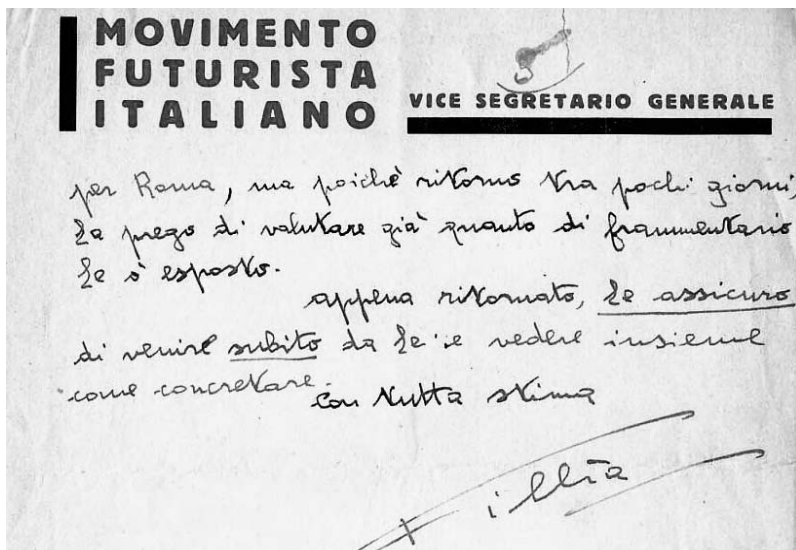 MOVIMENTO
FUTURISTA
ITALIANO
VICE SEGRETARIO GENERALE
per Roma, ma poichè ritorno tra pochi giorni,
La prego di valutare già quanto di frammentario
Le ò esposto.
appena ritornato, Le assicuro
di venire subito da Lei e vedere insieme
come concretare.
Con tutta stima
Fillia